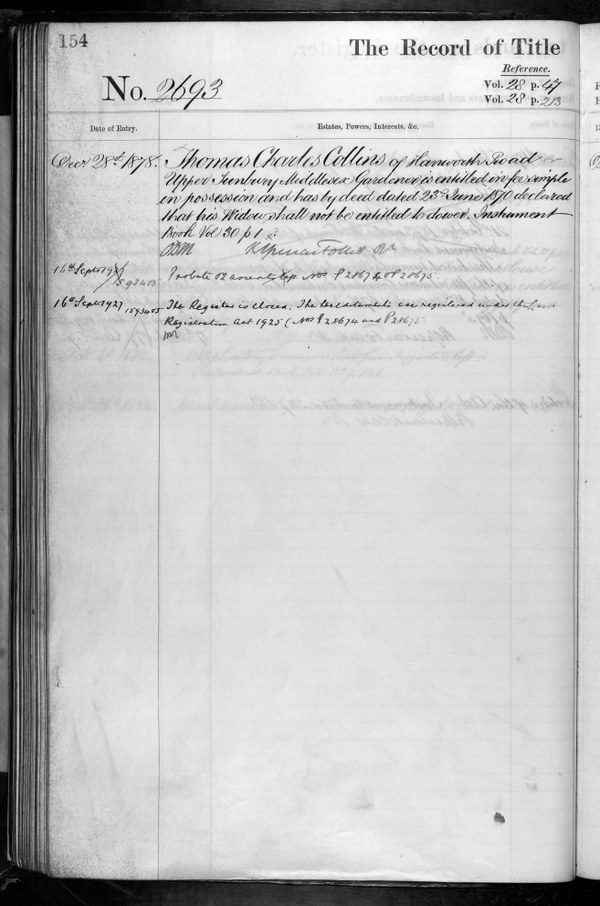 154
The Record of Title
Reference.
No. 2693
Vol. 28 p. 47
Vol. 28 p. 213
Date of Entry.
Estates, Powers, Interests, &c.
Decr 28th 1878. Thomas Charles Collins of Hanworth Road
Upper Sunbury Middlesex Gardener is entitled in fee simple
in possession and has by deed dated 23rd June 1870 declared
that his Widow shall not be entitled to dower. Instrument
Book Vol 30 p 1
16th Septr
1593405 Probate Nos P
16th Septr 1927 1593405 The Register is closed. The hereditaments are registered under the Land
Registration Act 1925 (Nos P 28674 and P 28675